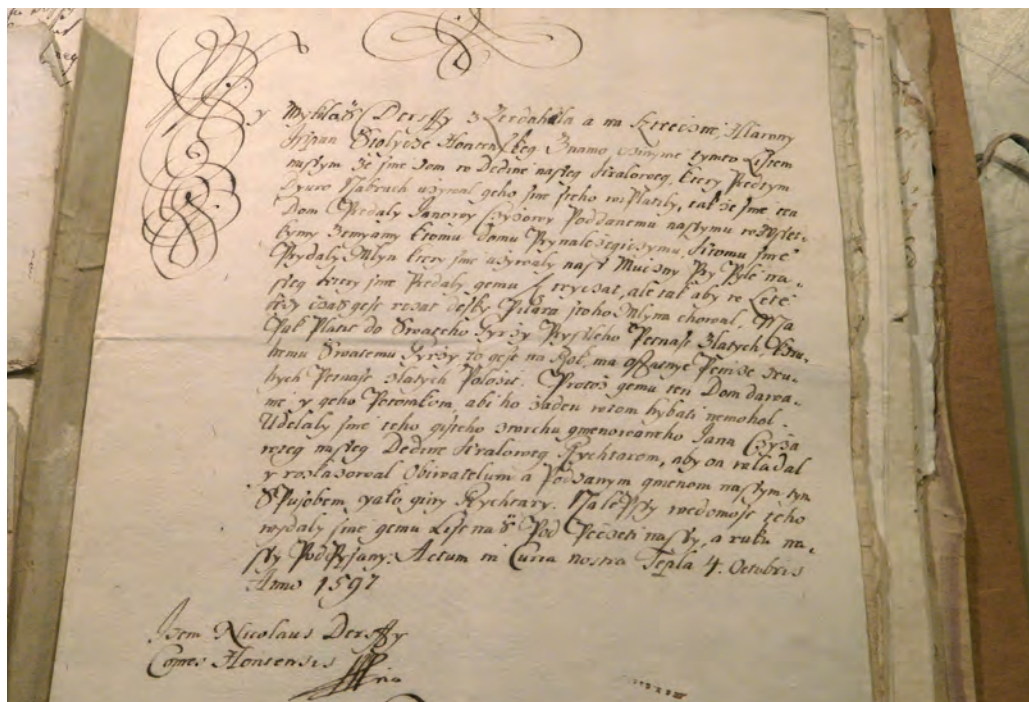 y Myklaß Dersffy z Zerdahela a na Hlawny
Isspan Stolycze Honten Skeg Znamo czinyme tymto Listem
nassym że sme Dom w Dedine nasseg Kraloweg, ktery Predtym
Dyuro Kabrach używal geho sme sceho wiPlatily, tak że sme ten
Dom Predaly Janowy Czyżowy Poddanemu nassymu
kymy Zemyamy ktomu Domu Prynależegiczymu, ktomu sme
Prydaly Mlyn ktery sme używaly naß y Mučzny Pry Pyle na-
sseg ktery sme Predaly gemu ale tak aby w Lete
Desky Pilara stoho Mlyna chowal. Ma
Tak Platit do Swateho Gyržy Pryssteho Petnast Zlatych, kdru-
hemu Swatemu Gyržy to gest na Rok, ma ostatnye Penize dru-
hych Petnast Zlatych Položit. Protoż gemu ten Dom dawa-
me y geho Potomkom, abi ho żaden wtom hybati nemohol.
Udelaly sme teho gisteho zwrchu gmenowaneho Jana Czyża
wteg nasseg Dedine Kraloweg Rychtarom, aby on wladal
y rozkazowal Obiwatelum a Poddanym gmenom nassym tym
SPusobem yako giny Rychtary. NalePssy wedomost teho
wydaly sme gemu List naß Pod Pečzeti nassy, a ruku na-
ssy PodPysany. Actum in Curia nostra Tepla 4. Octobris
Anno 1597
Idem Nicolaus Dersffy
Comes Hontensis